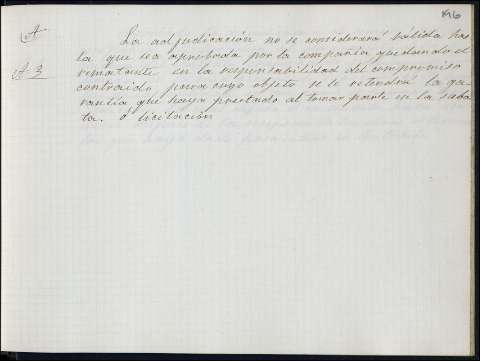 196
A
La adjudicación no se considerará válida has
ta que sea aprobada por la compañia quedando el
A 3
rematante en la responsabilidad del compromiso
contraido para cuyo objeto se le retendrá la ga-
rantia que haya prestado al tomar parte en la suba
ta. ó licitación